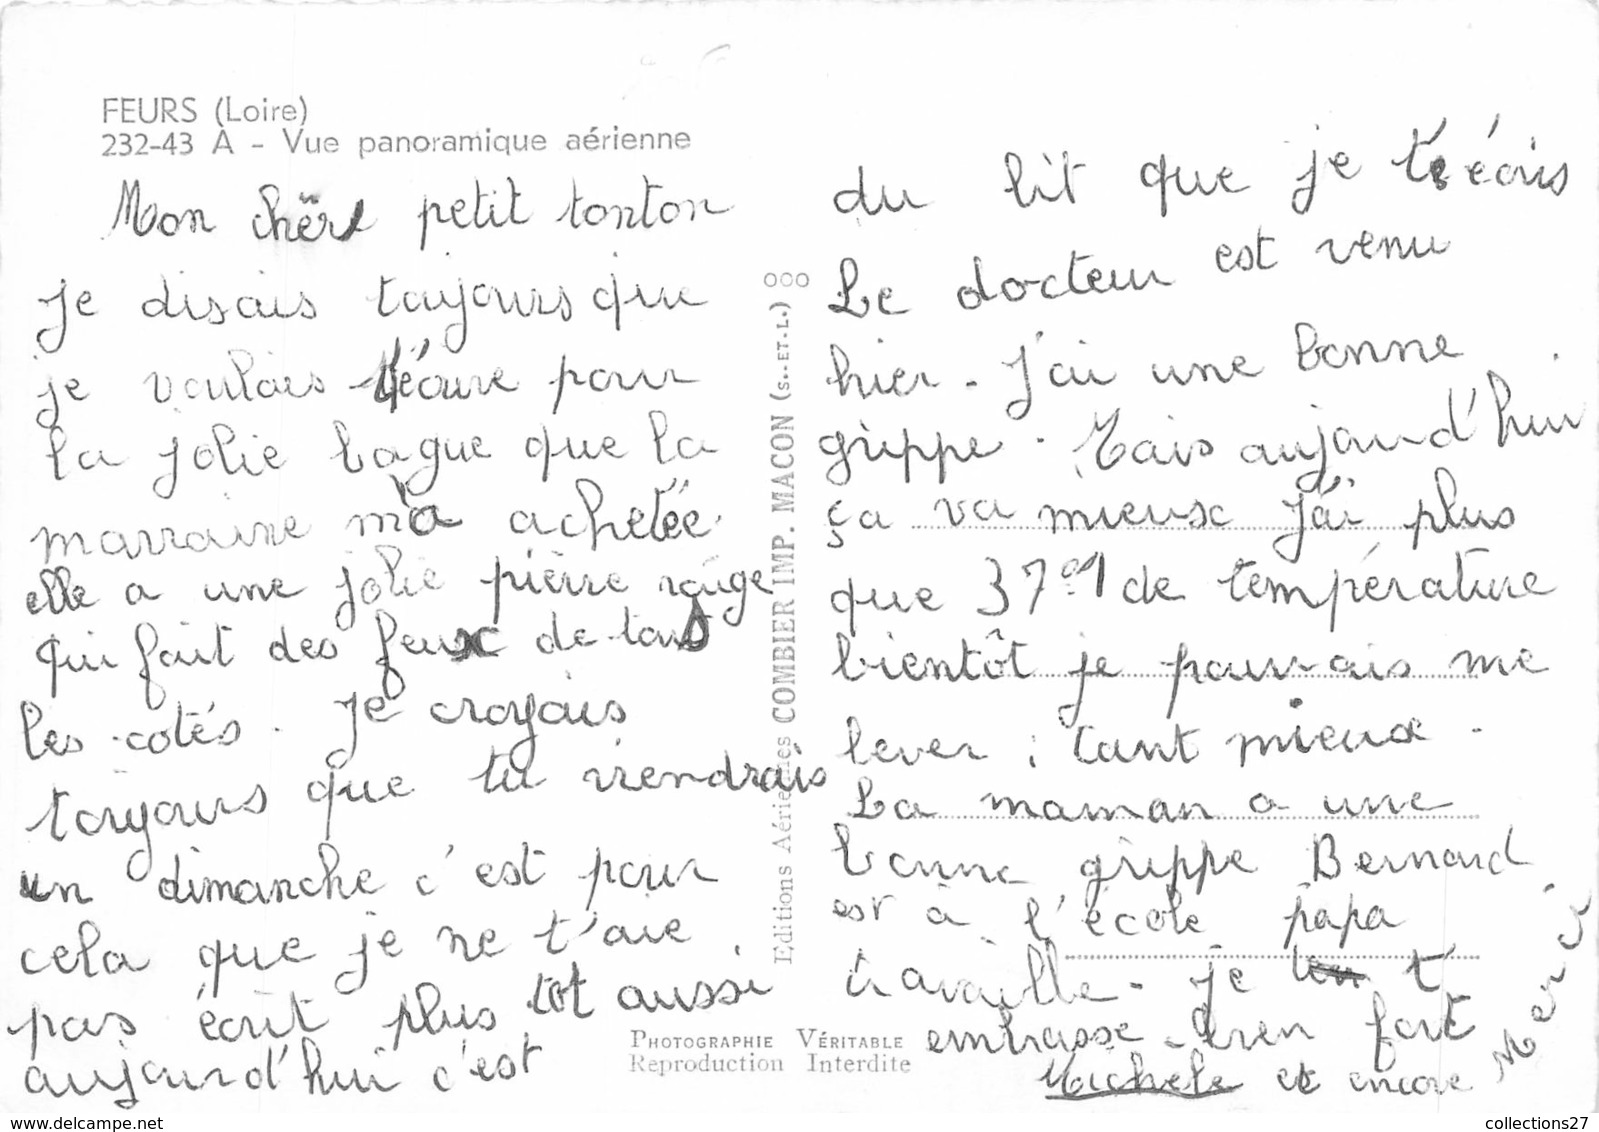 FEURS (Loire)
232-43 A - Vue panoramique aérienne
Mon chèr petit tonton
Je disais toujours que
je voulais t'écrire pour
la jolie bague que la
marraine m'a achetée.
elle a une jolie pierre rouge
qui fait des feux de tous
les cotés. Je croyais
toujours que tu viendrais
un dimanche c'est pour
cela que je ne t'aie
pas écrit plus tot aussi
aujourd'hui c'est
du lit que je t'écris
Le docteur est venu
hier. J'ai une bonne
grippe. Mais aujourd'hui
ça va mieux J'ai plus
que 37°1 de température
bientôt je pourrais me
lever; tant mieux.
La maman a une
bonne grippe Bernard
est à l'école papa
travaille. Je t
embrasse bien fort
Michele et encore
Merci
Editions Aériennes COMBIER IMP. MACON (S.-ET-L.)
PHOTOGRAPHIE VÉRITABLE
Reproduction Interdite
collections27